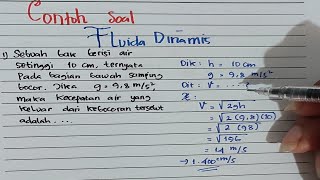 Contoh Soal
Fluida Dinamis
1) Sebuah bak berisi air
setinggi 10 cm, ternyata
Pada bagian bawah samping
bocor. Jika g = 9,8 m/s²,
maka kecepatan air yang
keluar dari kebocoran tersebut
adalah ....
Dik: h = 10 cm
g = 9,8 m/s²
Dit: V = ....
V = √2gh
= √2(9,8)(10)
= √2(98)
= √196
= 14 m/s
→ 1.400 m/s